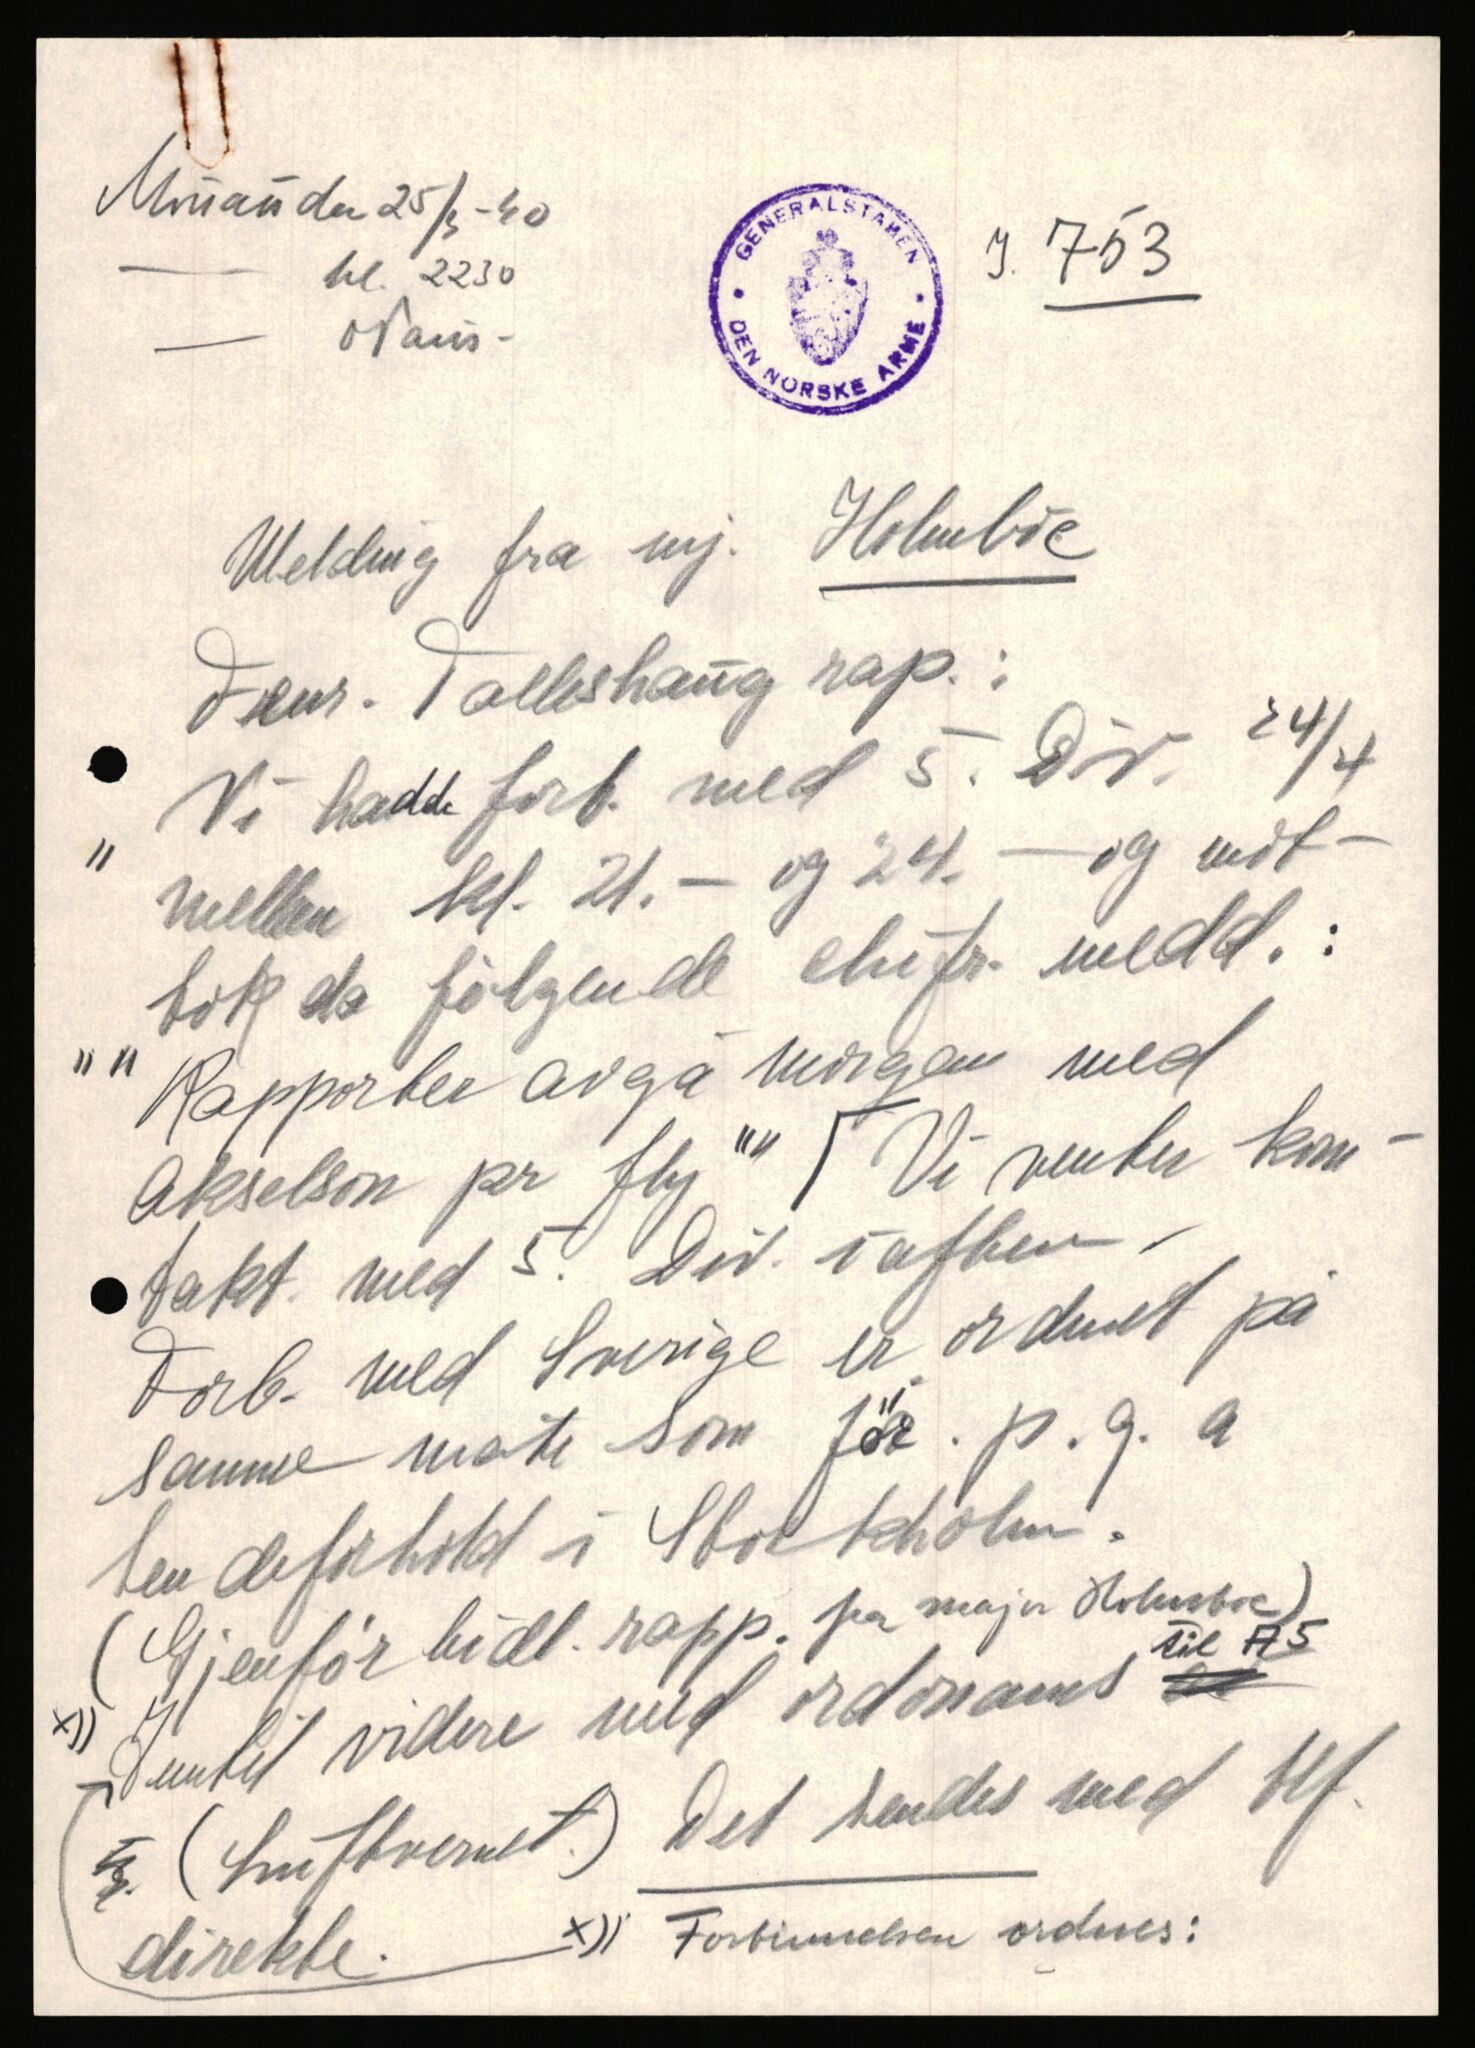 25/4-40
kl. 2230
GENERALSTABEN
DEN NORSKE ARME
J. 753
Melding fra mj. Holmboe
Fenr. Tolleshaug rap.:
Vi hadde forb. med 5. Div. 24/4
" mellem kl. 21.- og 24.- og mot-
tok da følgende chifr. medd.:
"" Rapporter avgå morgen med
Akselson pr fly "" Vi venter kon-
takt. med 5. Div. i aften.
Forb. med Sverige er ordnet på
samme måte som før. p.g.a
tendeforhold i Stockholm.
(Gjenfør tidl. rapp. fra major Holmboe)
x)) Inntil videre med ordonnans til A5
(Luftvernet.) Det sendes med tlf.
direkte. x)) Forbinnelsen ordnes: